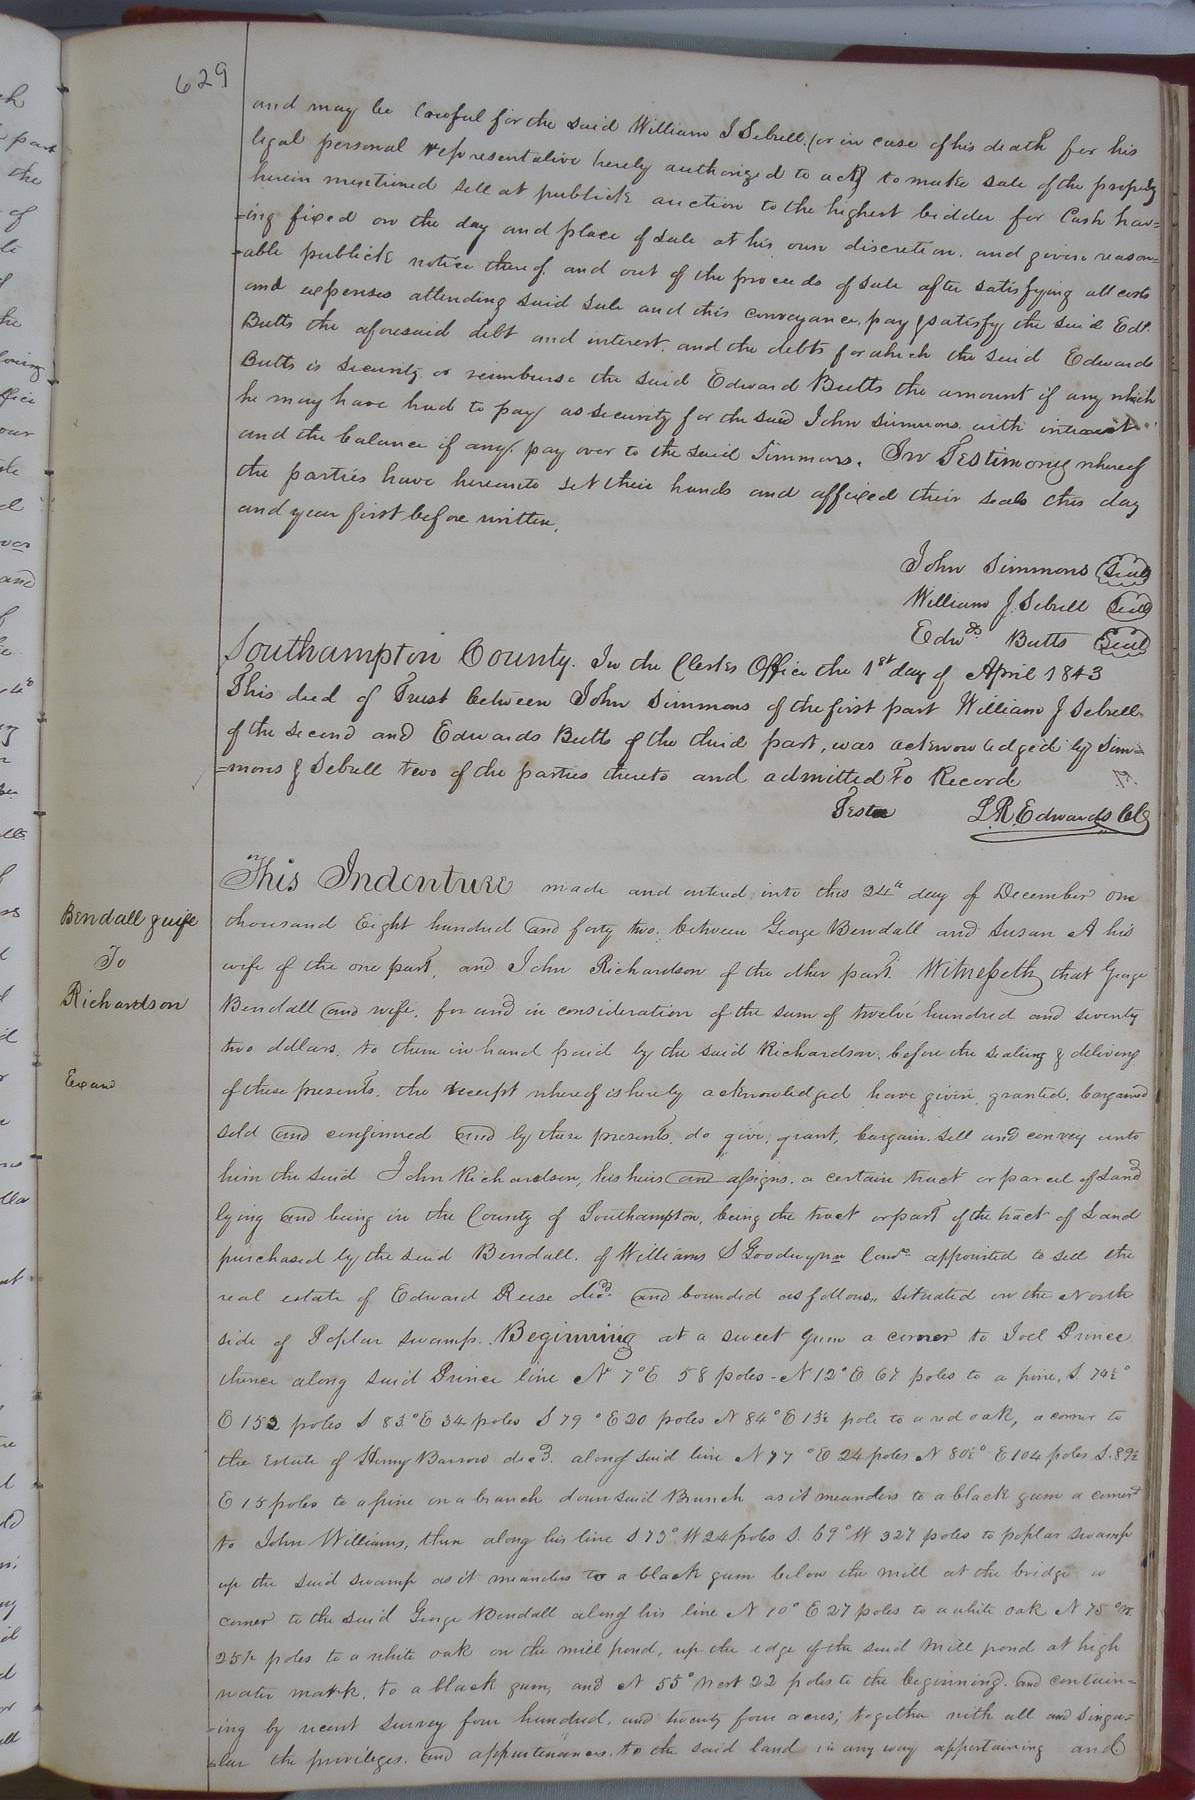 629
and may be lawful for the said William J Sebrell, (or in case of his death for his
legal personal representative hereby authorized to act) to make sale of the property
herein mentioned sell at publick auction to the highest bidder for Cash hav=
=ing fixed on the day and place of sale at his own discretion. and given reason=
=able publick notice thereof, and out of the proceeds of sale after satisfying all costs
and expenses attending said sale and this conveyance, pay & satisfy the said Edwd.
Butts the aforesaid debt and interest. and the debts for which the said Edwards
Butts is security, or reimburse the said Edward Butts the amount if any which
he may have had to pay as security for the said John Simmons with interest
and the balance if any. pay over to the said Simmons. In Testimony whereof
the parties have hereunto set their hands and affixed their seals this day
and year first before written.
John Simmons Seal
William J. Sebrell Seal
Edwds Butts Seal
Southampton County. In the Clerks Office the 1st day of April 1843
This deed of Trust between John Simmons of the first part William J Sebrell
of the second and Edwards Butts of the third part, was acknowledged by Sim=
=mons & Sebrell two of the parties thereto and admitted to Record
Teste L. R. Edwards Clk
Bendall & wife
To
Richardson
Exam
This Indenture made and entered into this 24th day of December one
thousand Eight hundred and forty two, between George Bendall and Susan A his
wife of the one part, and John Richardson of the other part. Witnesseth, that George
Bendall and wife, for and in consideration of the sum of twelve hundred and seventy
two dollars, to them in hand paid by the said Richardson, before the sealing & delivery
of these presents. the receipt whereof is hereby acknowledged have given, granted, bargained
sold and confirmed and by these presents, do give, grant, bargain. sell and convey unto
him the said John Richardson, his heirs and assigns. a certain tract or parcel of Land
lying and being in the County of Southampton, being the tract or part of the tract of Land
purchased by the said Bendall. of Williams S Goodwynn Comr. appointed to sell the
real estate of Edward Reese decd. and bounded as follows,, situated on the North
side of Poplar swamp. Beginning at a sweet gum a corner to Joel Prince
thence along said Prince line N 7° E 58 poles - N 12° E 67 poles to a pine, S. 74½°
E 152 poles S 83° E 34 poles S 79° E 20 poles N 84° E 13½ pole to a red oak, a corner to
the Estate of Henry Barrow decd. along said line N 77° E 24 poles N 80½° E 104 poles S. 89½
E 15 poles to a pine on a branch down said Branch as it meanders to a black gum a corner
to John Williams, then along his line S 73° W 24 poles S. 69° W 327 poles to poplar swamp
up the said swamp as it meanders to a black gum below the mill at the bridge a
corner to the said George Bendall along his line N 10° E 27 poles to a white oak N 75° W.
25½ poles to a white oak on the mill pond, up the edge of the said mill pond at high
water mark, to a black gum, and N 55° West 22 poles to the beginning. and contain=
=ing by recent survey four hundred, and twenty four acres; together with all and singu=
=lar the privileges. and appurtenances. to the said land in any way appertaining and